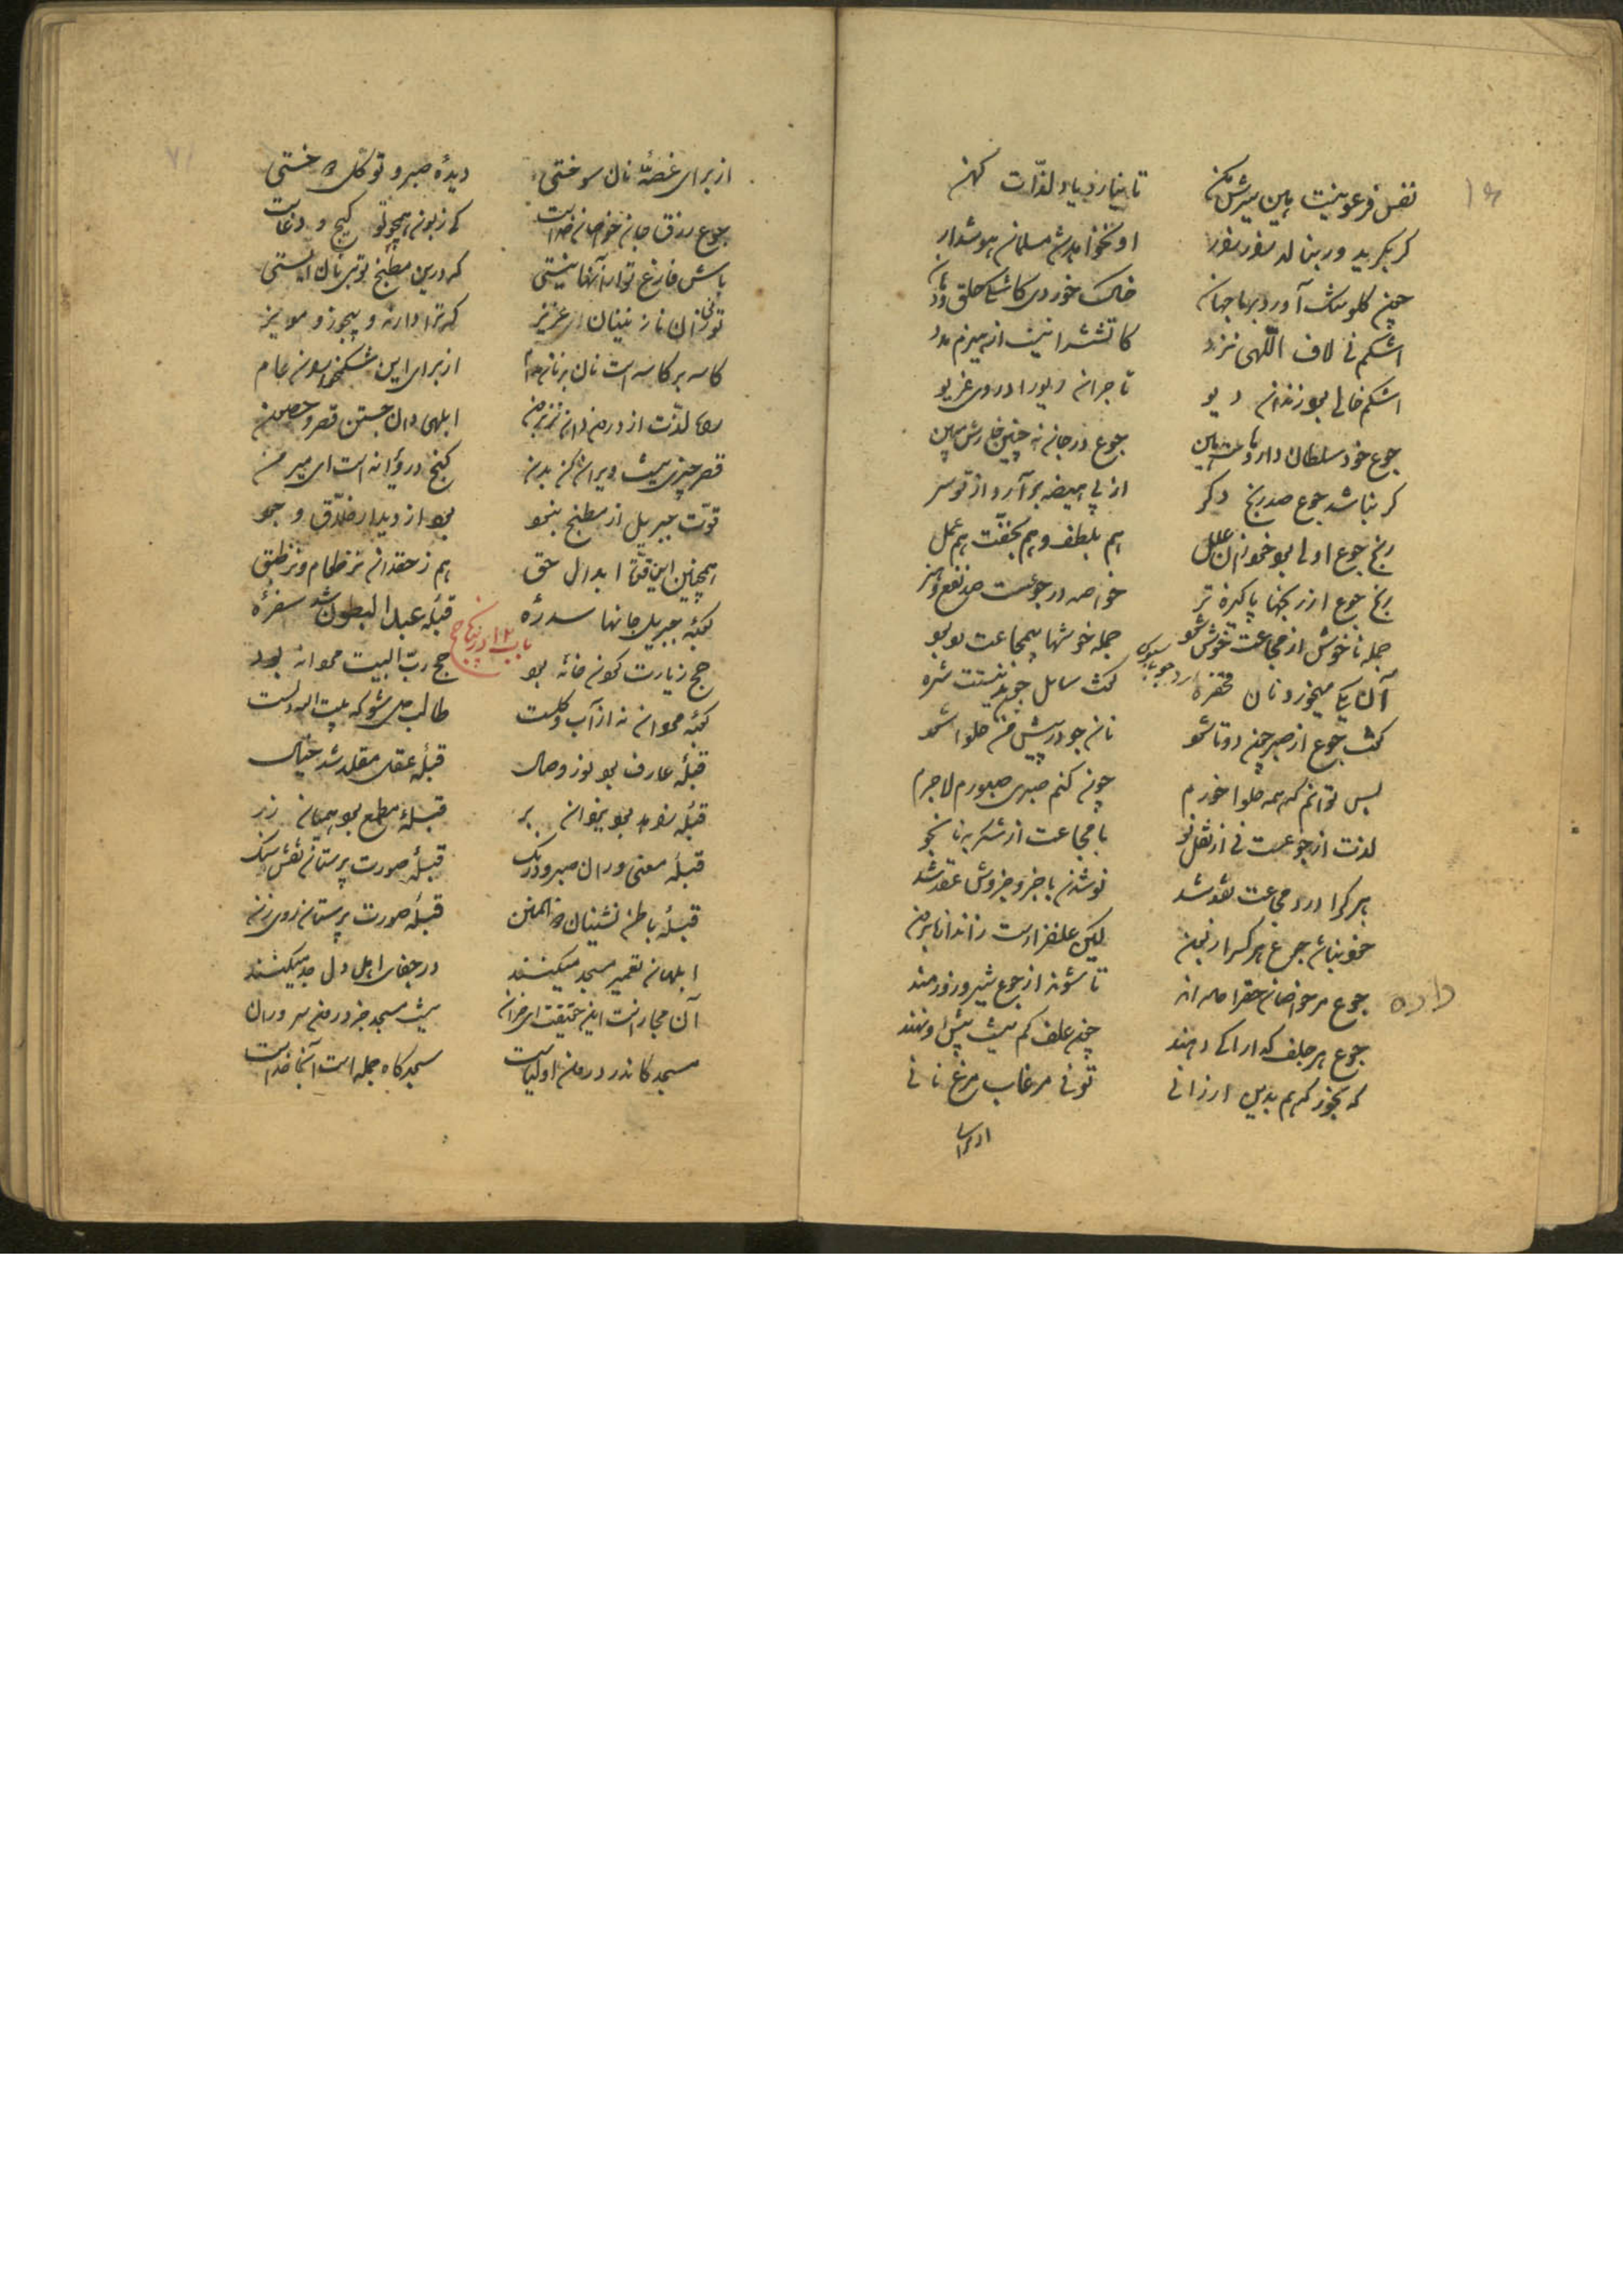 نفس فرعونیست هین سیرش مکن تا نیارد یاد لذات کهن
گر بگرید ور بنالد زار زار او نخواهد شد مسلمان هوشدار
خاک خوردی کاشکی حلق و دهان
اشکم نی لاف اللهی نزد کاتشش را نیست از هیزم مدد
اشکم خالی بود زندان دیو
جوع خود سلطان داروهاست هین جوع در جان نه چنین خوارش مبین
گر نباشد جوع صد رنج دگر از پی هیضه برآرد از تو سر
رنج جوع اولی بود خود زان علل هم بلطف و هم بخفت هم عمل
رنج جوع از رنجها پاکیزه تر خاصه در جوعست صد نفع و هنر
جمله ناخوش از مجاعت خوش شود جمله خوشها بی مجاعت
آن یکی میخورد نان فخفره گفت سائل چون بدینستت شره
گفت جوع از صبر چون دوتا شود نان جو در پیش من حلوا شود
پس توانم که همه حلوا خورم چون کنم صبری صبورم لاجرم
لذت از جوعست نی از نقل نو با مجاعت از شکر به نان جو
هر کرا درد مجاعت نقد شد نو شدن با جزو جزوش عقد شد
خود نباشد جوع هر کس را زبون کین علفزاریست ز اندازه برون
داده
جوع مر خاصان حق را داده اند تا شوند از جوع شیر و زورمند
جوع هر جلف گدا را کی دهند چون علف کم نیست پیش او نهند
که بخور که هم بدین ارزانی تو نی مرغاب مرغ نانی
از برای
از برای غصه نان سوختی دیده صبر و توکل دوختی
جوع رزق جان خاصان خداست کی زبون همچو تو گیج و دغاست
باش فارغ تو از آنها نیستی که درین مطبخ تو بی نان ایستی
تو نی زان نازنینان عزیز که ترا دارند بی جوز و مویز
کاسه بر کاسه است نان بر نان مدام از برای این شکمخواران عام
راه لذت از درون دان نز برون ابلهی دان جستن قصر و حصون
قصر چیزی نیست ویران کن بدن گنج در ویرانه است ای میر من
قوت جبریل از مطبخ نبود بود از دیدار خلاق وجود
همچنین این قوت ابدال حق هم ز حق دان نز طعام و نز طبق
باب ۱۲ در بیان حج
کعبه جبریل جانها سدره قبله عبد البطون شد سفره
حج زیارت کردن خانه بود حج رب البیت مردانه بود
کعبه مردان نه از آب و گلست طالب دل شو که بیت الله دلست
قبله عارف بود نور وصال قبله عقل مقلد شد خیال
قبله زاهد بود یزدان بر قبله مطمع بود همیان زر
قبله معنی وران صبر و درنگ قبله صورت پرستان نقش سنگ
قبله باطن نشینان ذو المنن قبله صورت پرستان روی زن
ابلهان تعمیر مسجد میکنند در جفای اهل دل جد میکنند
آن مجازست این حقیقت ای خران نیست مسجد جز درون سروران
مسجد کاندر درون اولیاست سجده گاه جمله است آنجا خداست